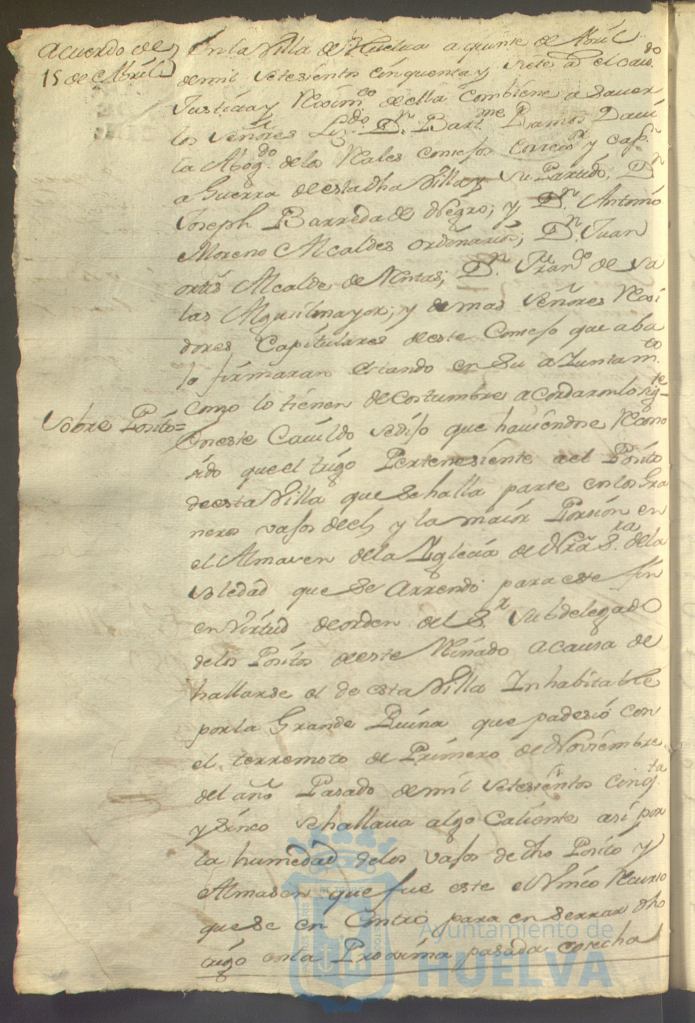 Acuerdo de
15 de Abril
En la Villa de Huelva a quinse de Abril
de mil setesientos cinquenta y siete as. el cavdo
Justicia y Reximto de ella combiene a saver
los Señores Lizdo Dn Bartme Ramos Davi
la Abogdo de los Reales consejos Corregor y capn
a Guerra de esta dha Villa y su Partido; Dn
Joseph Barreda de Negro; y Dn Antonio
Moreno Alcaldes ordinarios; Dn Juan
ortis Alcalde de Rentas; Dn Franco de Sa
las Alguasil mayor; y demas Señores Rexi
dores Capitulares de este Consejo que aba
jo firmaran estando en su Aiuntamto
como lo tienen de costumbre acordaron lo sigte
Sobre Posito=
En este Cavildo se dijo que haviendose Recono
sido que el trigo Pertenesiente a el Posito
de esta Villa que se halla parte en los Gra
neros vajos de el, y la maior Porsion en
el Almasen de la Iglecia de Nra Sra de la
Soledad que se Arrendo para este fin
en Virtud de orden del Sr Subdelegado
de los Positos de este Reinado a causa de
hallarse el de esta Villa Inhabitable
por la Grande Ruina que padesio con
el terremoto de Primero de Noviembre
del año Pasado de mil setesientos cinqta
y Sinco se hallava algo Caliente asi por
la humedad de los vajos de dho Posito y
Almasen que fue este el Unico Recurso
que se en Contro para en serrar dho
trigo en la Proxima pasada cosecha
Ayuntamiento de
HUELVA